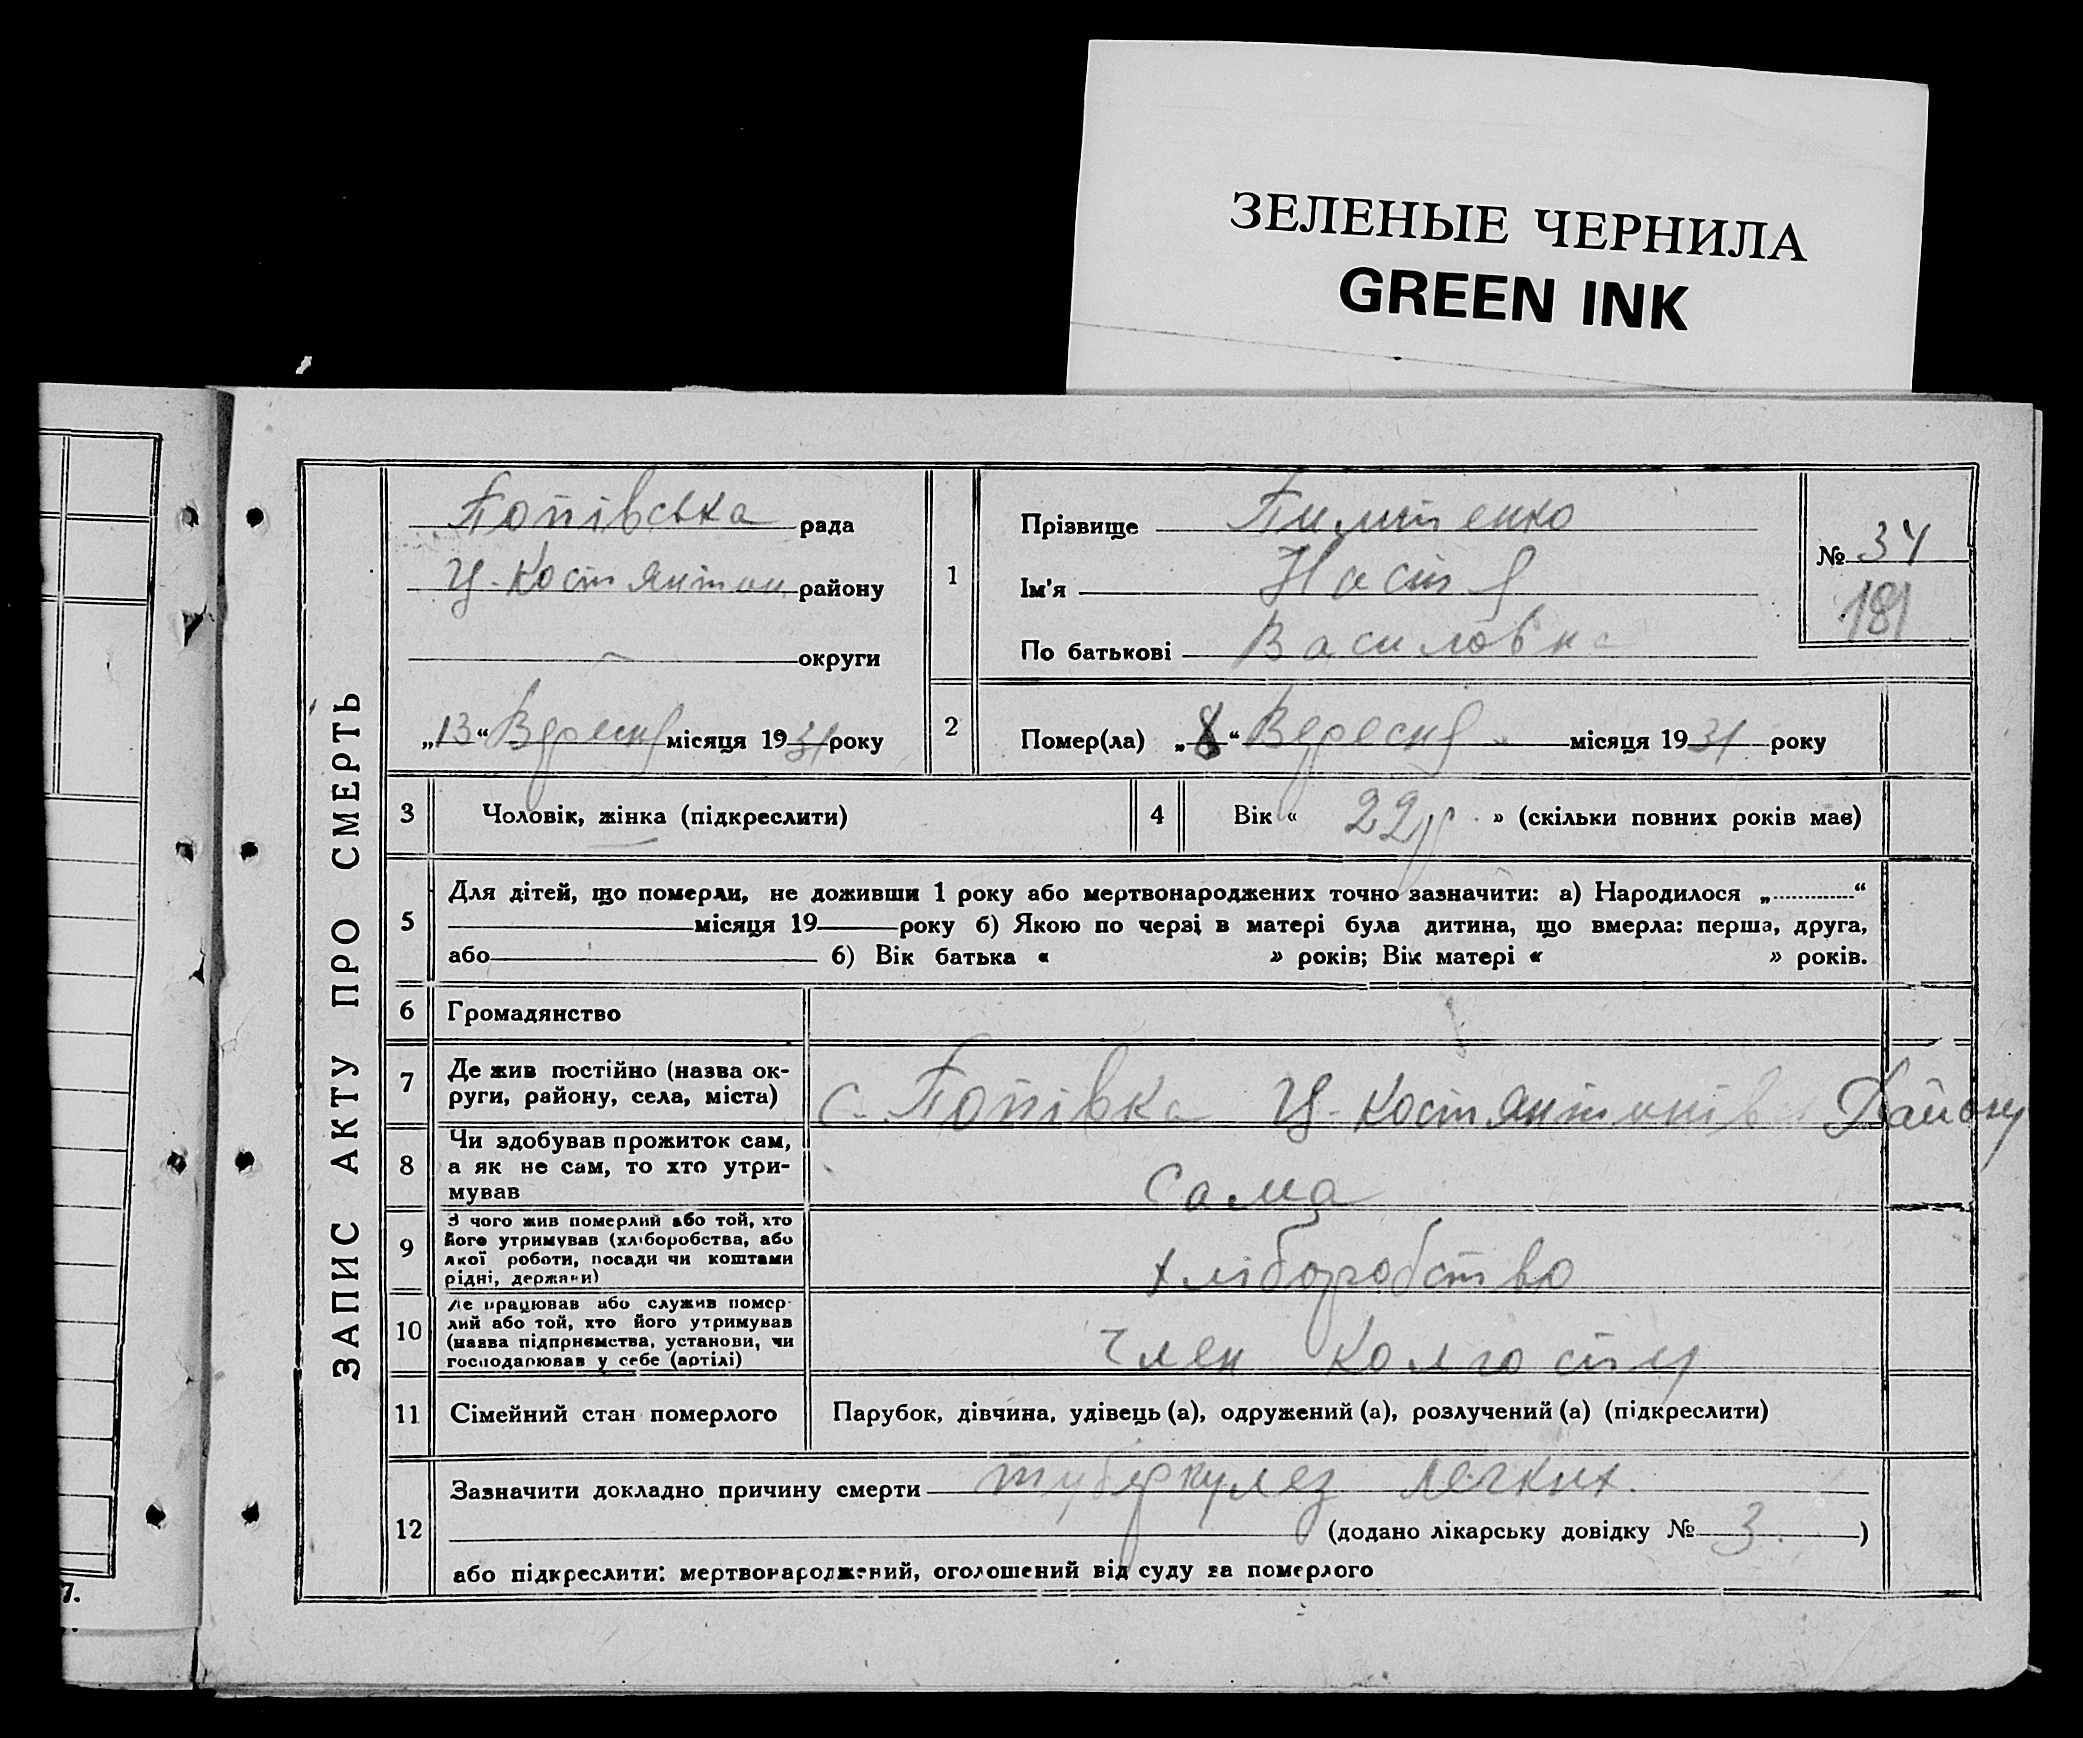 ЗЕЛЕНЫЕ ЧЕРНИЛА
GREEN INK
ЗАПИС АКТУ ПРО СМЕРТЬ
Попівська рада
Ч-Костянтин району
округи
„13“ Вересня місяця 1931 року
1
Прізвище
Ім'я Настя
По батькові Василовна
№ 34
181
2
Помер(ла) „8“ Вересня місяця 1931 року
3
Чоловік, жінка (підкреслити)
4
Вік « 22р » (скільки повних років має)
5
Для дітей, що померли, не доживши 1 року або мертвонароджених точно зазначити: а) Народилося „ “
місяця 19 року б) Якою по черзі в матері була дитина, що вмерла: перша, друга,
або б) Вік батька « » років; Вік матері « » років.
6
Громадянство
7
Де жив постійно (назва ок-
руги, району, села, міста)
с. Попівка Ч-Костянтинів Району
8
Чи здобував прожиток сам,
а як не сам, то хто утри-
мував
Сама
9
З чого жив померлий або той, хто
його утримував (хліборобства, або
якої роботи, посади чи коштами
рідні, держави)
хліборобство
10
Де працював або служив помер-
лий або той, хто його утримував
(назва підприємства, установи, чи
господарював у себе (артілі)
Член Колгоспу
11
Сімейний стан померлого
Парубок, дівчина, удівець (а), одружений (а), розлучений (а) (підкреслити)
12
Зазначити докладно причину смерти туберкулез легких.
(додано лікарську довідку № 3. )
або підкреслити: мертвонароджений, оголошений від суду за померлого
7.